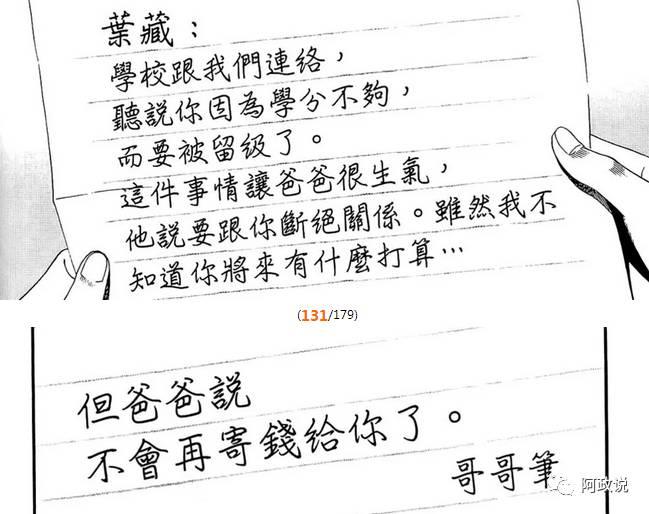 葉藏：
學校跟我們連絡，
聽說你因為學分不夠，
而要被留級了。
這件事情讓爸爸很生氣，
他說要跟你斷絕關係。雖然我不
知道你將來有什麼打算…
(131/179)
但爸爸說
不會再寄錢給你了。
哥哥筆
阿政说